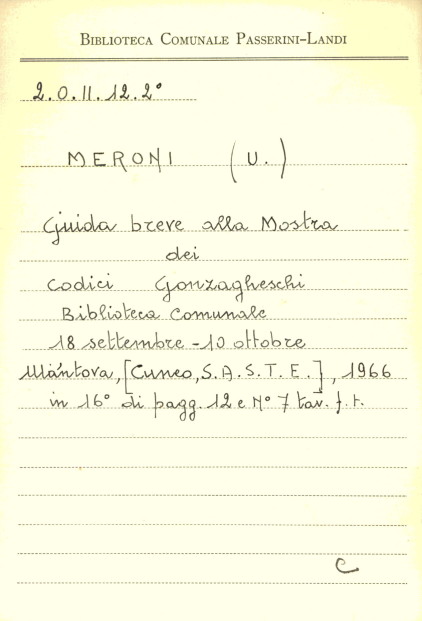 BIBLIOTECA COMUNALE PASSERINI-LANDI
2.0.II.12.2°
MERONI (U.)
Guida breve alla Mostra
dei
Codici Gonzagheschi
Biblioteca Comunale
18 settembre - 10 ottobre
Mantova, [Cuneo, S.A.S.T.E.], 1966
in 16° di pagg. 12 e N° 7 tav. f.t.
C